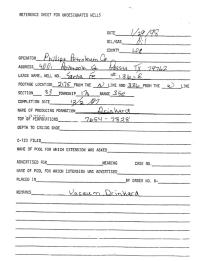 REFERENCE SHEET FOR UNDESIGNATED WELLS
DATE 1/29/98
OIL/GAS Oil
COUNTY Lea
OPERATOR Phillips Petroleum Co
ADDRESS 4001 Penbrook St. Odessa TX 79762
LEASE NAME, WELL NO. Santa Fe #
FOOTAGE LOCATION FROM THE N LINE AND FROM THE LINE
SECTION 33 TOWNSHIP RANGE 35E
COMPLETION DATE
NAME OF PRODUCING FORMATION Drinkard
TOP OF PERFORATIONS 7654 - 7828
DEPTH TO CASING SHOE
C-123 FILED
NAME OF POOL FOR WHICH EXTENSION WAS ASKED
ADVERTISED FOR HEARING CASE NO.
NAME OF POOL FOR WHICH EXTENSION WAS ADVERTISED
PLACED IN BY ORDER NO. R-
REMARKS Vacuum Drinkard